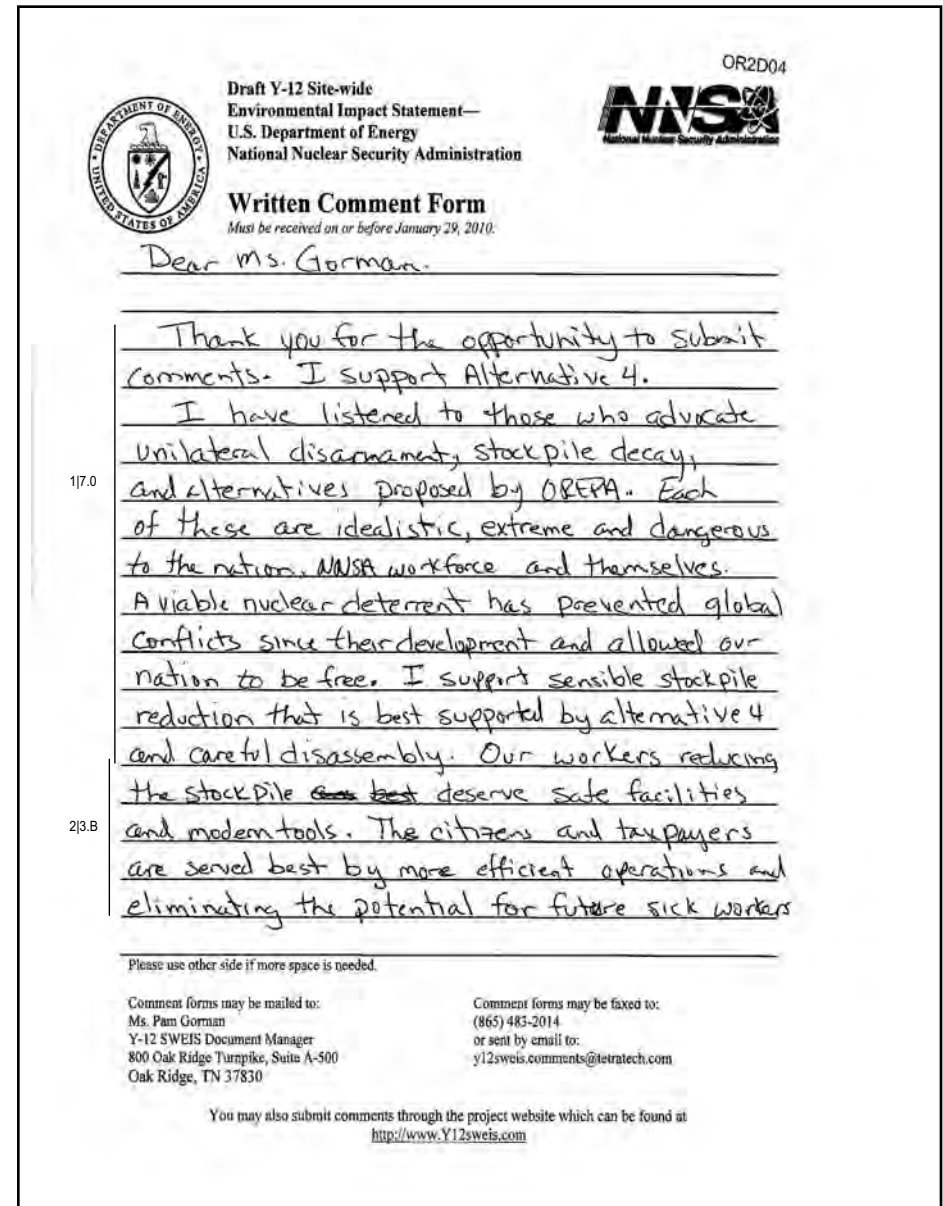 OR2D04
Draft Y-12 Site-wide
Environmental Impact Statement—
U.S. Department of Energy
National Nuclear Security Administration
NNSA
National Nuclear Security Administration
DEPARTMENT OF ENERGY
UNITED STATES OF AMERICA
Written Comment Form
Must be received on or before January 29, 2010.
Dear Ms. Gorman.
Thank you for the opportunity to submit
comments. I support Alternative 4.
I have listened to those who advocate
unilateral disarmament, stockpile decay,
1|7.0
and alternatives proposed by OREPA. Each
of these are idealistic, extreme and dangerous
to the nation, NNSA workforce and themselves.
A viable nuclear deterrent has prevented global
conflicts since their development and allowed our
nation to be free. I support sensible stockpile
reduction that is best supported by alternative 4
and careful disassembly. Our workers reducing
the stockpile best deserve safe facilities
2|3.B
and modern tools. The citizens and taxpayers
are served best by more efficient operations and
eliminating the potential for future sick workers
Please use other side if more space is needed.
Comment forms may be mailed to:
Ms. Pam Gorman
Y-12 SWEIS Document Manager
800 Oak Ridge Turnpike, Suite A-500
Oak Ridge, TN 37830
Comment forms may be faxed to:
(865) 483-2014
or sent by email to:
y12sweis.comments@tetratech.com
You may also submit comments through the project website which can be found at
http://www.Y12sweis.com